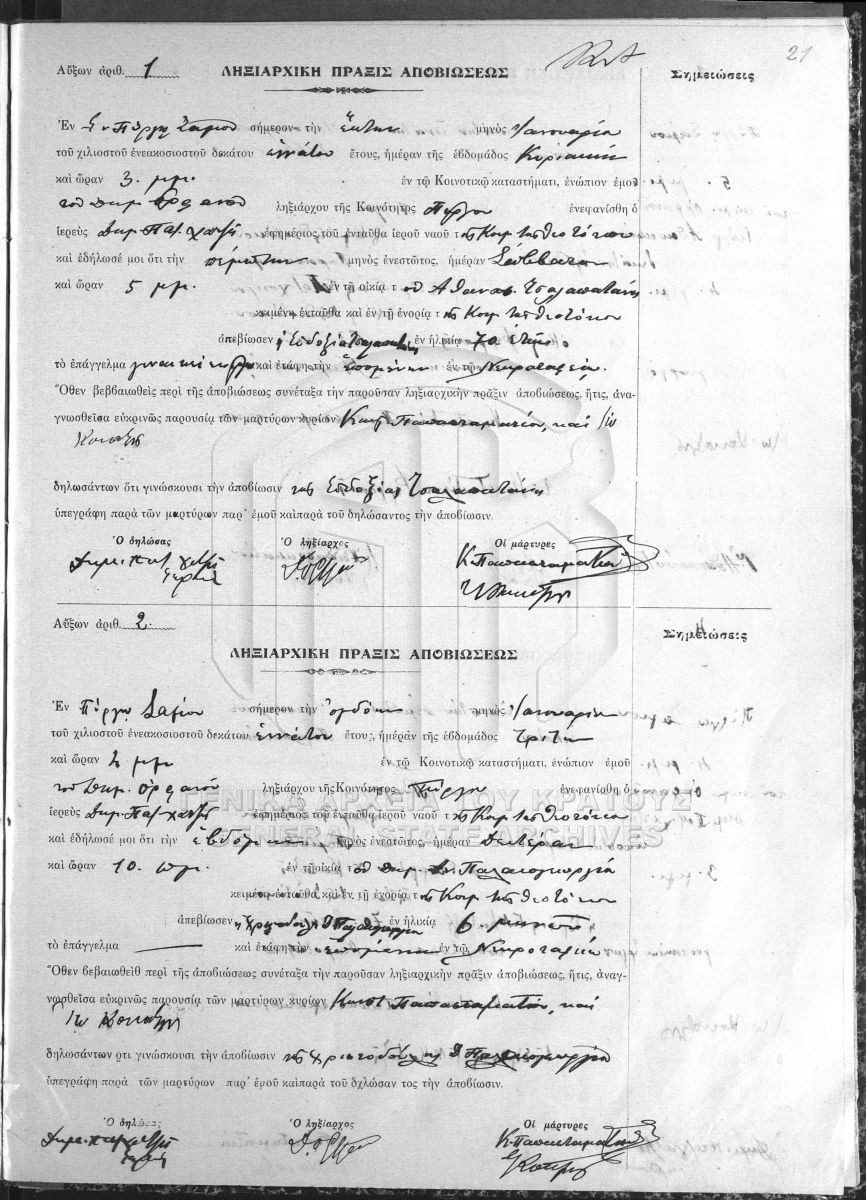 21
Αὔξων ἀριθ. 1
ΛΗΞΙΑΡΧΙΚΗ ΠΡΑΞΙΣ ΑΠΟΒΙΩΣΕΩΣ
Σημειώσεις
Ἐν Πύργῳ Σάμου σήμερον τὴν ἕκτην μηνὸς Ἰανουαρίου
τοῦ χιλιοστοῦ ἐνεακοσιοστοῦ δεκάτου ἐννάτου ἔτους, ἡμέραν τῆς ἑβδομάδος Κυριακὴν
καὶ ὥραν 3 μμ. ἐν τῷ Κοινοτικῷ καταστήματι, ἐνώπιον ἐμοῦ
τοῦ Δημ. Ὀρφανοῦ ληξιάρχου τῆς Κοινότητος Πύργου ἐνεφανίσθη ὁ
ἱερεὺς Δημ. Παπ. χατζῆς ἐφημέριος τοῦ ἐνταῦθα ἱεροῦ ναοῦ τῆς Κοιμ. τῆς Θεοτόκου
καὶ ἐδήλωσέ μοι ὅτι τὴν πέμπτην μηνὸς ἐνεστῶτος, ἡμέραν Σάββατον
καὶ ὥραν 5 μμ. ἐν τῇ οἰκίᾳ τοῦ Ἀθανασ. Τσαλαπατάνη
κειμένῃ ἐνταῦθα καὶ ἐν τῇ ἐνορίᾳ τῆς Κοιμ. τῆς Θεοτόκου
ἀπεβίωσεν ἡ Εὐδοξία Τσαλαπατάνη ἐν ἡλικίᾳ 70 ἐτῶν
τὸ ἐπάγγελμα καὶ ἐτάφη τὴν ἑπομένην ἐν τῷ Νεκροταφείῳ.
Ὅθεν βεββαιωθεὶς περὶ τῆς ἀποβιώσεως συνέταξα τὴν παροῦσαν ληξιαρχικὴν πρᾶξιν ἀποβιώσεως, ἥτις, ἀνα-
γνωσθεῖσα εὐκρινῶς παρουσίᾳ τῶν μαρτύρων κυρίων Κωνστ. Παπασταματίου, καὶ Ἰω
δηλωσάντων ὅτι γινώσκουσι τὴν ἀποβίωσιν τῆς Εὐδοξίας Τσαλαπατάνη
ὑπεγράφη παρὰ τῶν μαρτύρων παρ' ἐμοῦ καὶ παρὰ τοῦ δηλώσαντος τὴν ἀποβίωσιν.
Ὁ δηλώσας Ὁ ληξίαρχος Οἱ μάρτυρες
Κ. Παπασταματίου
Αὔξων ἀριθ. 2
Σημειώσεις
ΛΗΞΙΑΡΧΙΚΗ ΠΡΑΞΙΣ ΑΠΟΒΙΩΣΕΩΣ
Ἐν Πύργῳ Σάμου σήμερον τὴν ὀγδόην μηνὸς Ἰανουαρίου
τοῦ χιλιοστοῦ ἐνεακοσιοστοῦ δεκάτου ἐννάτου ἔτους, ἡμέραν τῆς ἑβδομάδος Τρίτην
καὶ ὥραν 4 μμ ἐν τῷ Κοινοτικῷ καταστήματι, ἐνώπιον ἐμοῦ
τοῦ Δημ. Ὀρφανοῦ ληξιάρχου τῆς Κοινότητος Πύργου ἐνεφανίσθη ὁ
ἱερεὺς Δημ. Παπ. χατζῆς ἐφημέριος τοῦ ἐνταῦθα ἱεροῦ ναοῦ τῆς Κοιμ. τῆς Θεοτόκου
καὶ ἐδήλωσέ μοι ὅτι τὴν ἑβδόμην μηνὸς ἐνεστῶτος, ἡμέραν Δευτέραν
καὶ ὥραν 10 πμ. ἐν τῇ οἰκίᾳ τοῦ Δημ. Παλαιογεωργίου
κειμένῃ ἐνταῦθα καὶ ἐν τῇ ἐνορίᾳ τῆς Κοιμ. τῆς Θεοτόκου
ἀπεβίωσεν ἐν ἡλικίᾳ 6 μηνῶν
τὸ ἐπάγγελμα — καὶ ἐτάφη τὴν ἑπομένην ἐν τῷ Νεκροταφείῳ
Ὅθεν βεβαιωθεὶθ περὶ τῆς ἀποβιώσεως συνέταξα τὴν παροῦσαν ληξιαρχικὴν πρᾶξιν ἀποβιώσεως, ἥτις, ἀναγ-
νωσθεῖσα εὐκρινῶς παρουσίᾳ τῶν μαρτύρων κυρίων Κωνστ Παπασταματίου, καὶ
Ἰω
δηλωσάντων ρτι γινώσκουσι τὴν ἀποβίωσιν τῆς Χριστοδούλης Δ Παλαιογεωργίου
ὑπεγράφη παρὰ τῶν μαρτύρων παρ' ἐνοῦ καὶ παρὰ τοῦ δχλώσαν τος τὴν ἀποβίωσιν.
Ὁ δηλώσας Ὁ ληξίαρχος Οἱ μάρτυρες
Κ. Παπασταματίου
ΓΕΝΙΚΑ ΑΡΧΕΙΑ ΤΟΥ ΚΡΑΤΟΥΣ
GENERAL STATE ARCHIVES